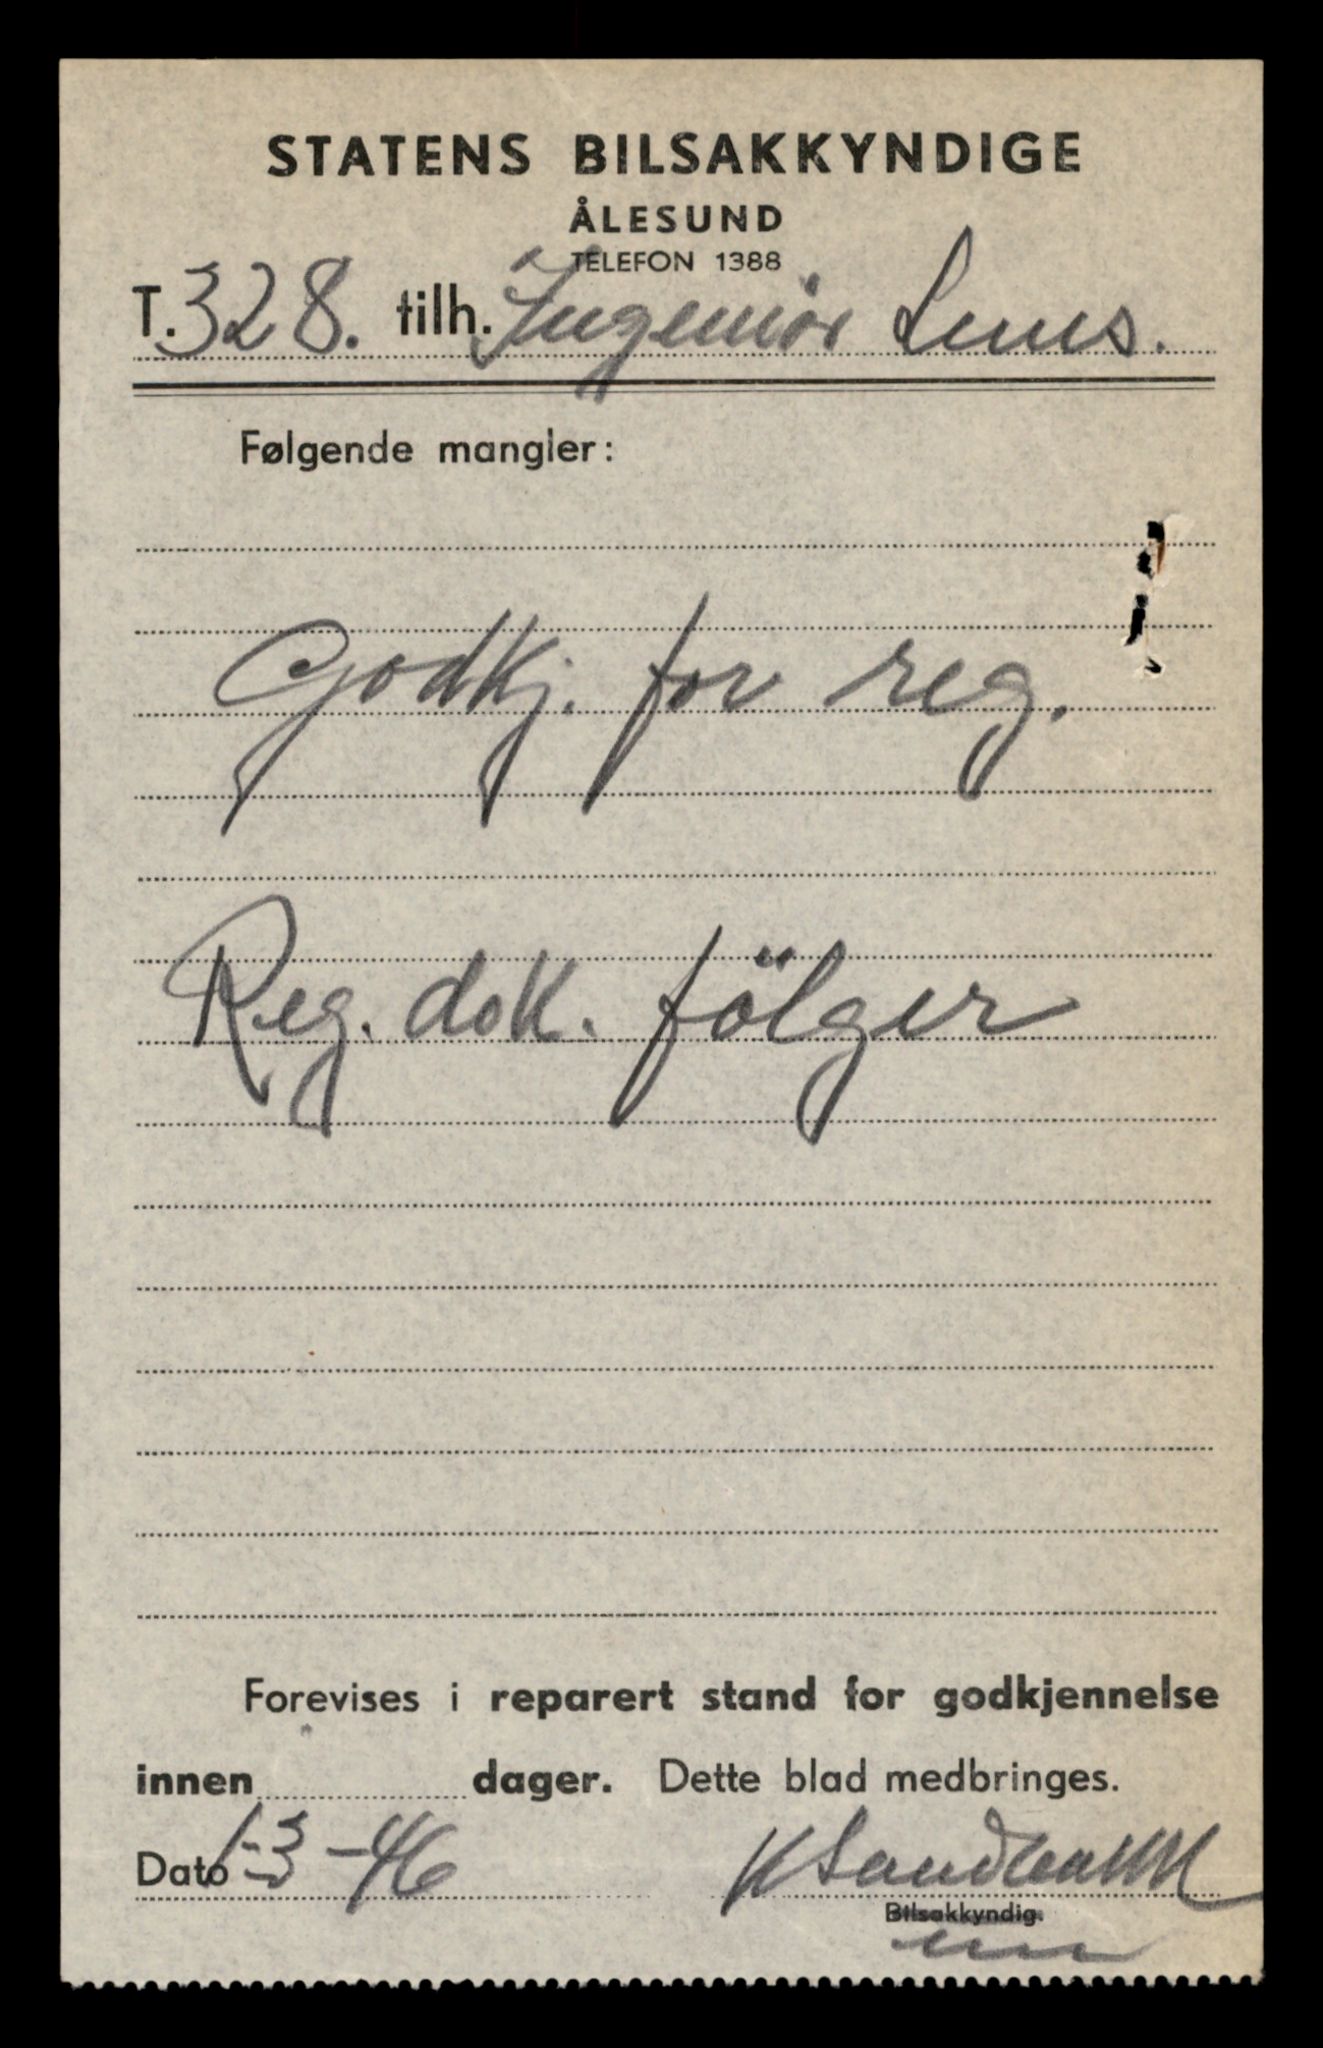 STATENS BILSAKKYNDIGE
ÅLESUND
TELEFON 1388
T. 328. tilh. Ingeniør
Følgende mangler:
Godkj. for reg.
Reg. dok. fölger
Forevises i reparert stand for godkjennelse
innen dager. Dette blad medbringes.
Dato 1-3-46
Bilsakkyndig.